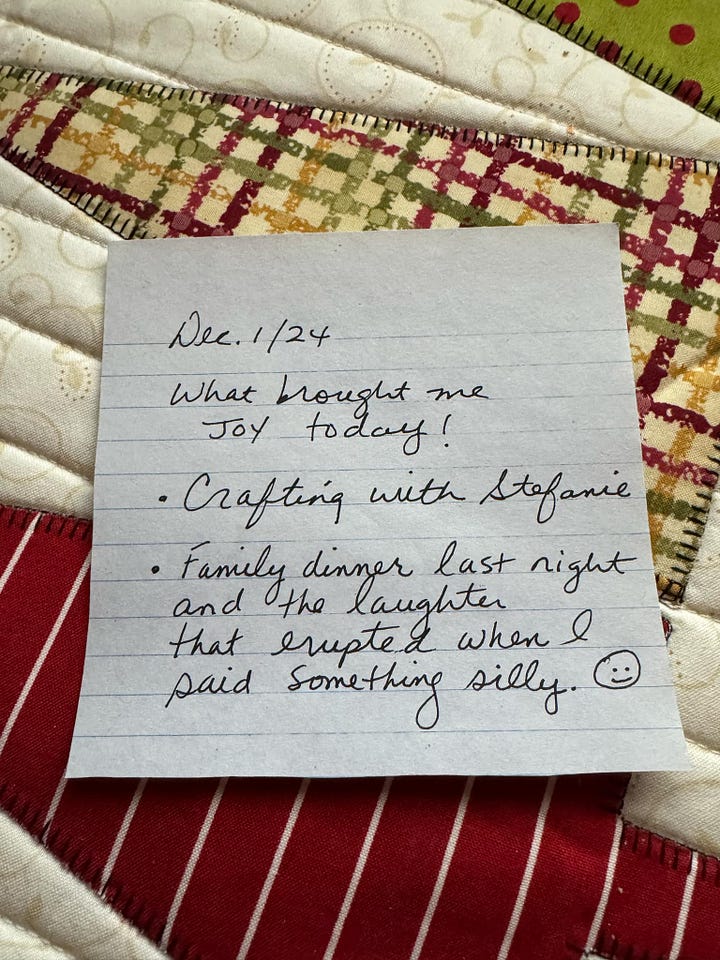 Dec. 1/24
What brought me
JOY today!
• Crafting with Stefanie
• Family dinner last night
and the laughter
that erupted when I
said something silly. ☺